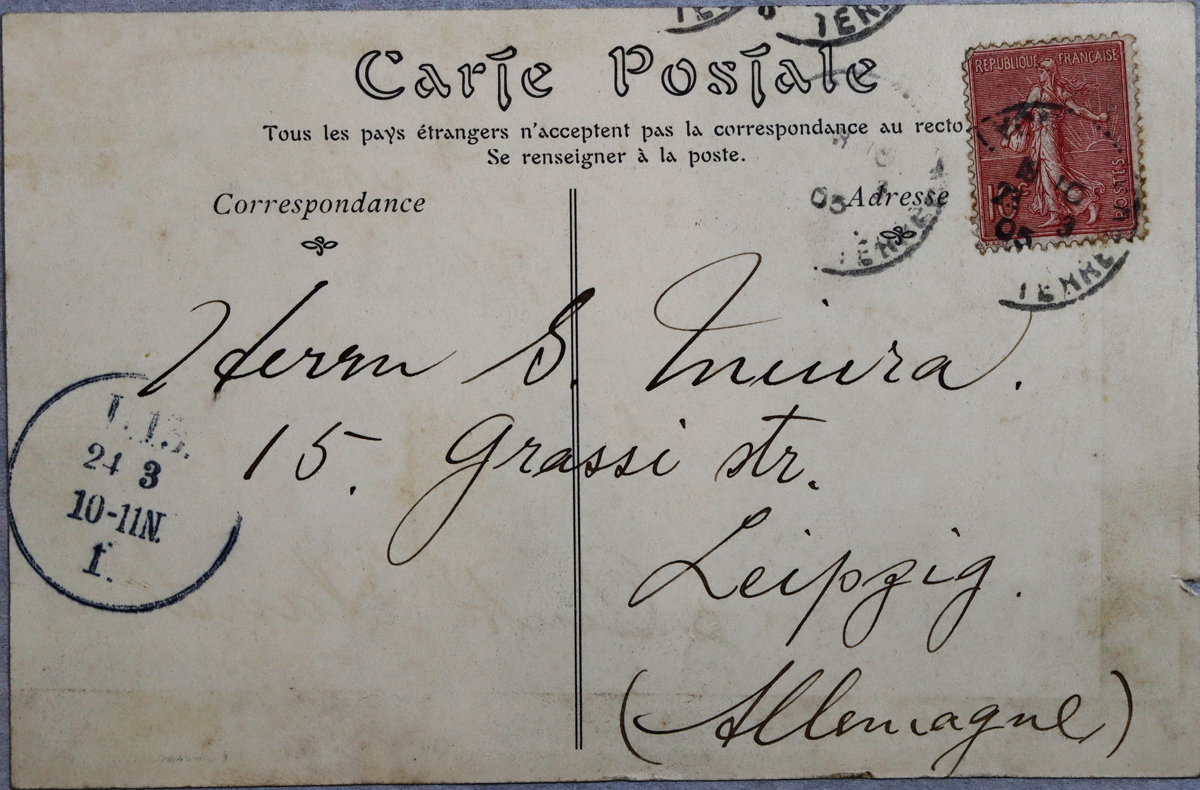 Carte Postale
Tous les pays étrangers n'acceptent pas la correspondance au recto.
Se renseigner à la poste.
Correspondance
Adresse
REPUBLIQUE FRANÇAISE
POSTES
05
Herrn S. Miura.
15. Grassi str.
Leipzig.
(Allemagne)
L.13.
24 3
10-11N.